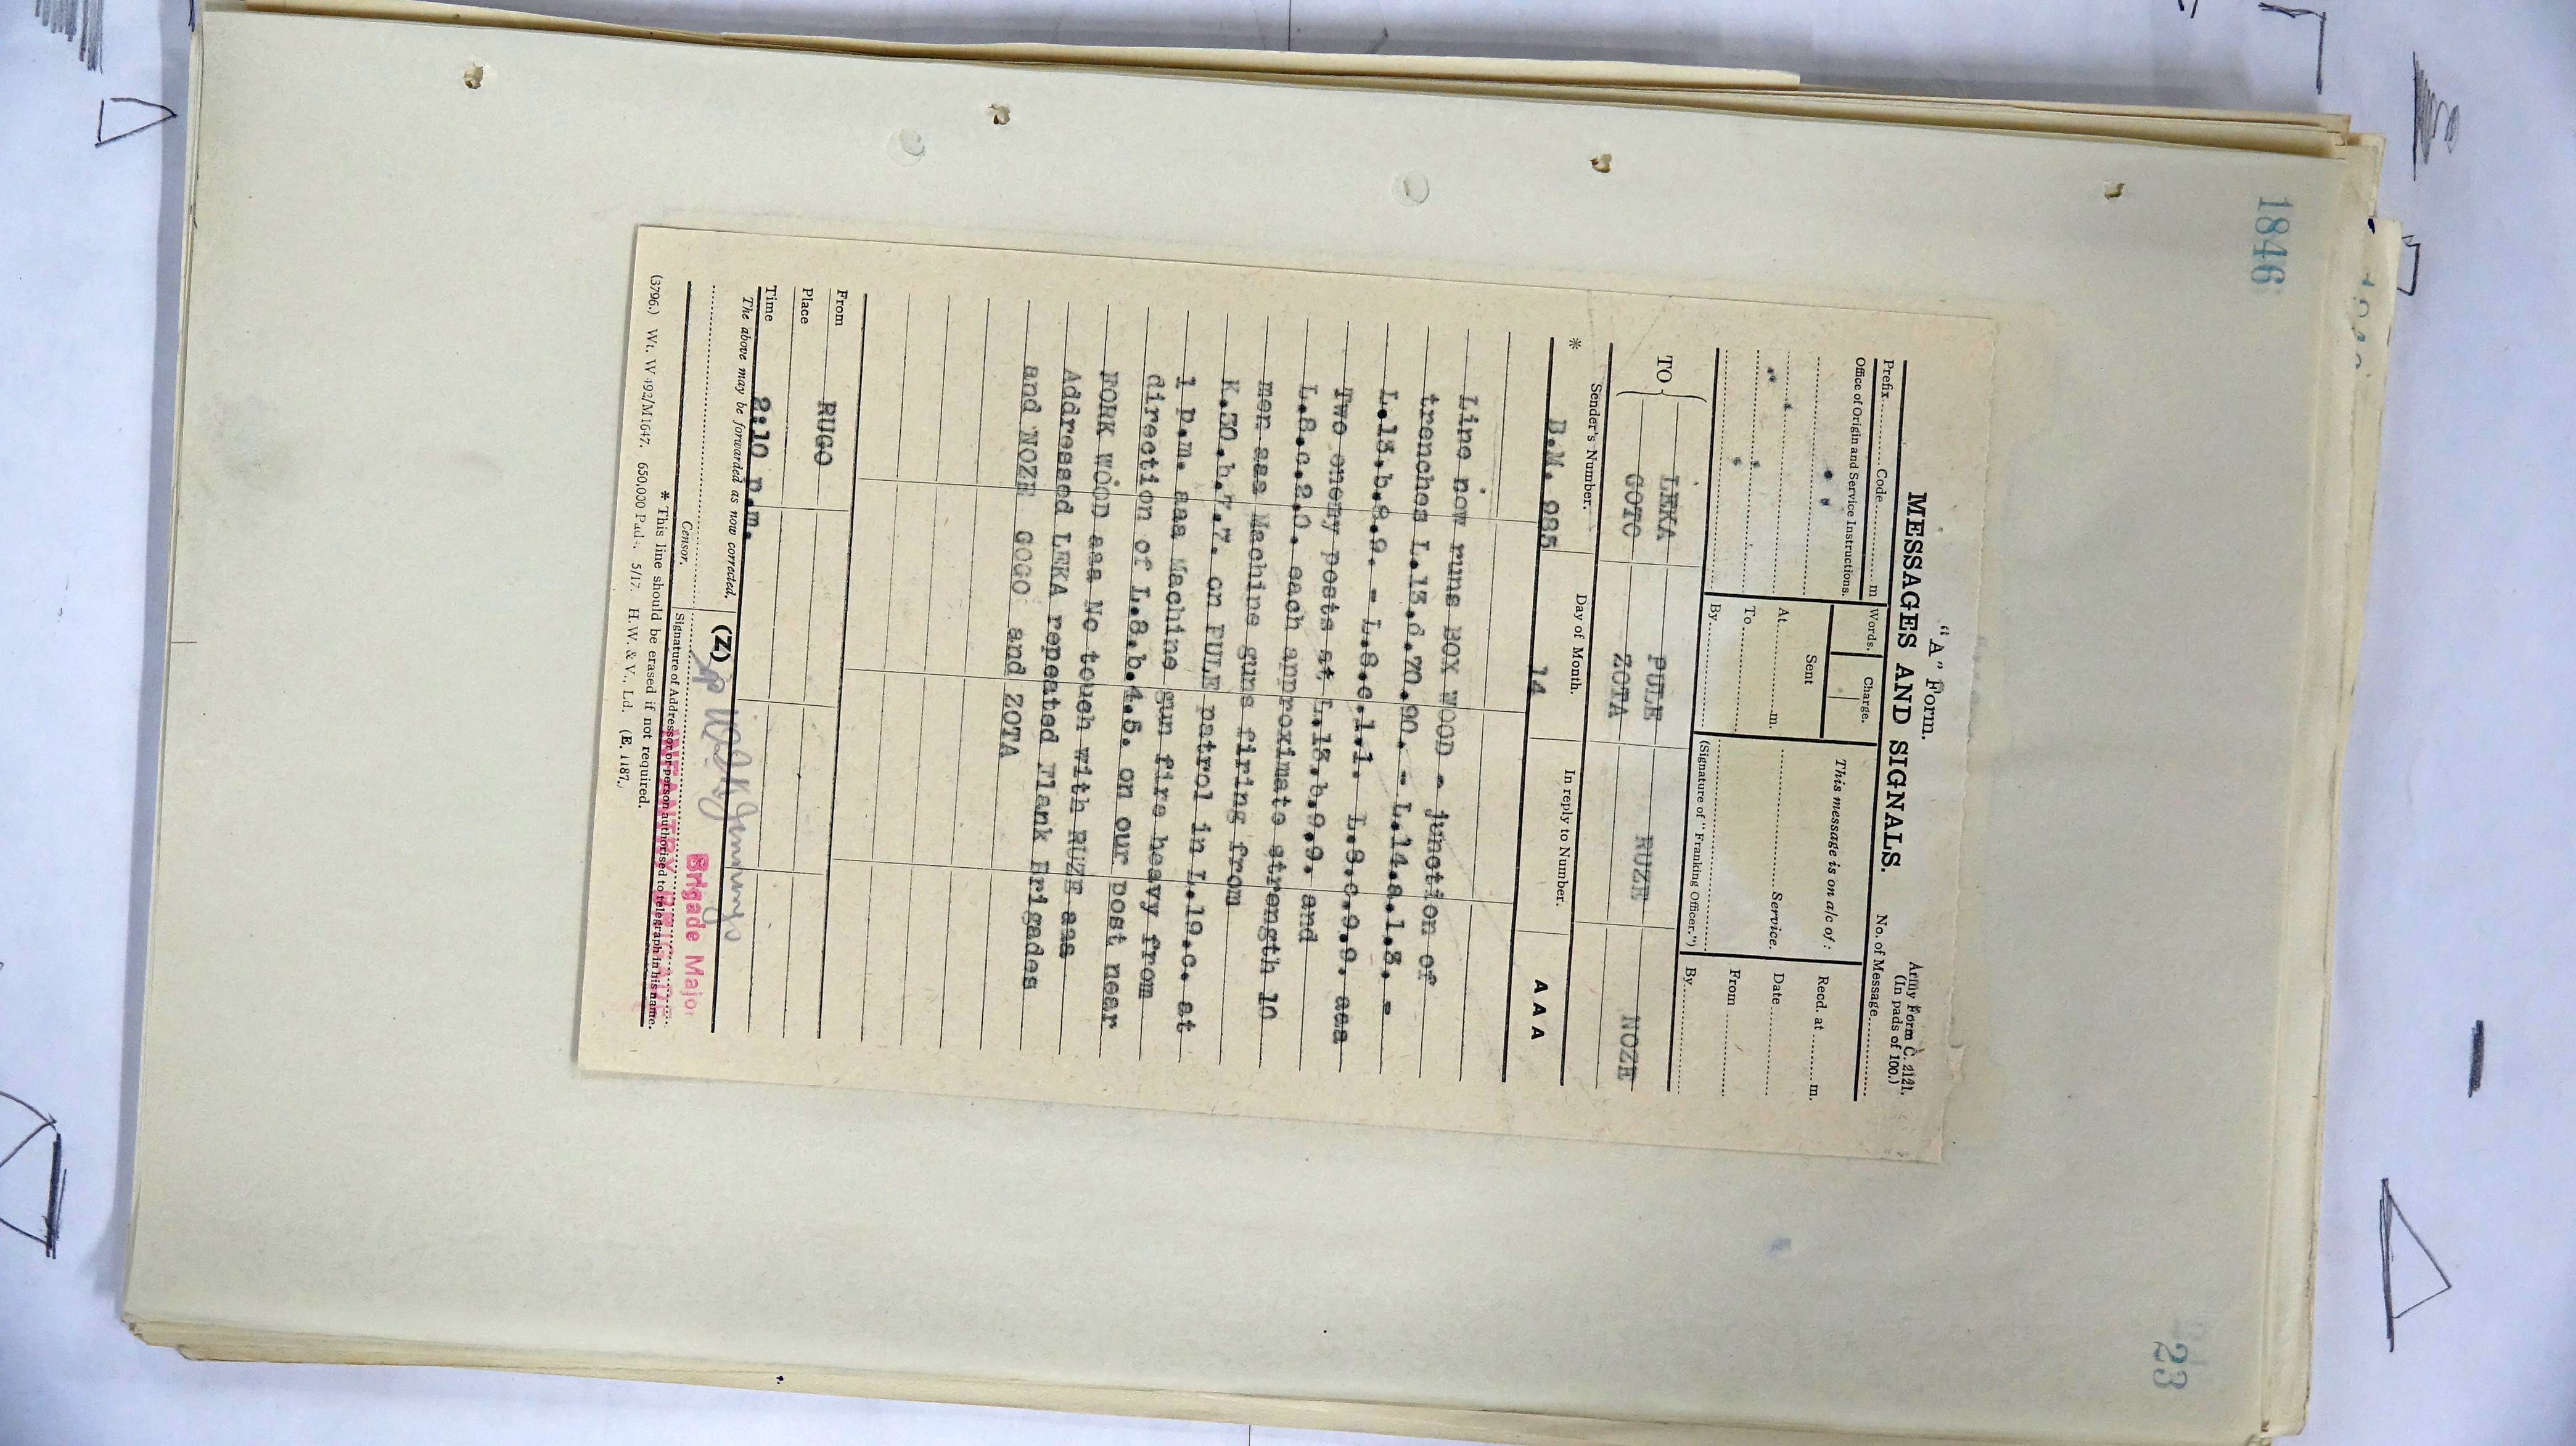 1846
"A" Form.
Army Form C. 2121.
MESSAGES AND SIGNALS.
(In pads of 100.)
No. of Message
Prefix Code m
Words.
Charge.
This message is on a/c of :
Recd. at m.
Office of Origin and Service Instructions.
Sent
Service.
Date
At m.
From
To
By
(Signature of "Franking Officer.")
By
TO
LEKA PULE RUZE NOZE
GOTO ZOTA
* Sender's Number.
Day of Month.
In reply to Number.
A A A
B.M. 985 14
Line now runs BOX WOOD - junction of
trenches L.13.d.70.90. - L.14.a.1.3. -
L.13.b.9.9. - L.8.c.1.1. L.8.c.9.9. aaa
Two enemy posts at L.13.b.9.9. and
L.8.c.2.0. each approximate strength 10
men aaa Machine guns firing from
K.30.b.7.7. on PULE patrol in L.19.c. at
1 p.m. aaa Machine gun fire heavy from
direction of L.8.b.4.5. on our post near
FORK WOOD aaa No touch with RUZE aaa
Addressed LEKA repeated Flank Brigades
and NOZE GOGO and ZOTA
From RUGO
Place
Time 2:10 p.m.
The above may be forwarded as now corrected. (Z)
Brigade Major
Censor.
Signature of Addressor or person authorised to telegraph in his name.
INFANTRY BRIGADE
* This line should be erased if not required.
(3796.) Wt. W 492/M1647. 650,000 Pads. 5/17. H.W. & V., Ld. (E. 1187.)
23